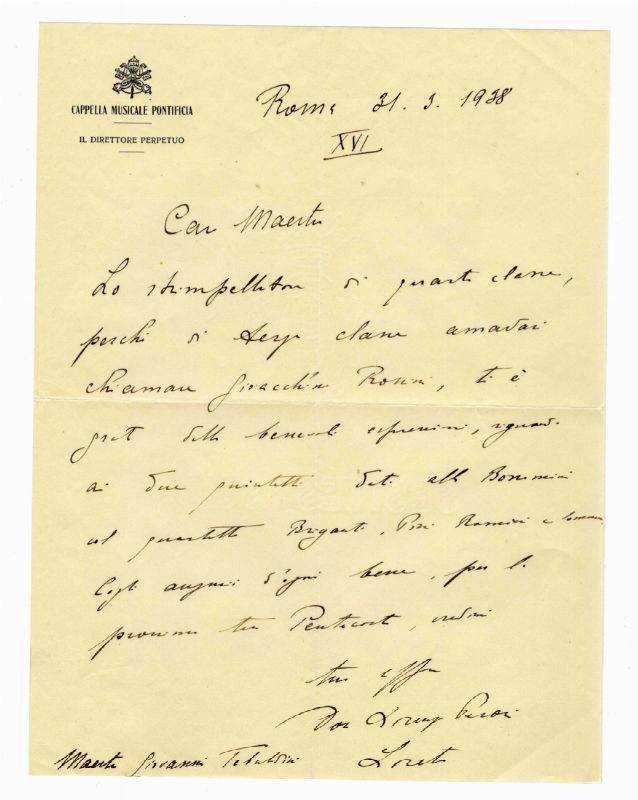 CAPPELLA MUSICALE PONTIFICIA
IL DIRETTORE PERPETUO
Roma 31. 3. 1938
XVI
Caro Maestro
Lo strimpellatore di quarta classe,
perché di terza classe amava
chiamare Gioacchino Rossini, ti è
grato delle benevoli espressioni, riguardo
ai due quintetti dati alla Borromini
col quartetto Briganti, Romini e
Cogli auguri d'ogni bene, per la
prossima tua Pentecoste, credimi
tuo
Don Lorenzo Perosi
Maestro Giovanni Tebaldini Loreto